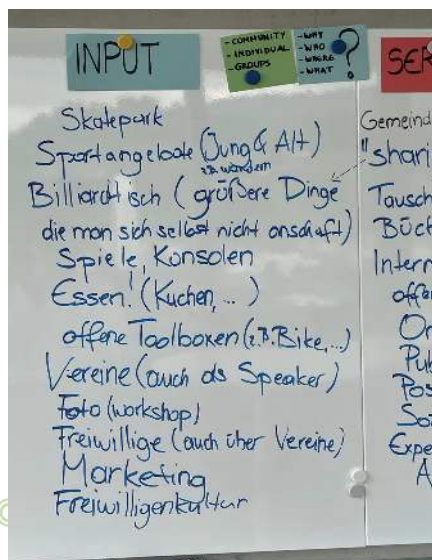 INPUT
- COMMUNITY
- INDIVIDUAL
- GROUPS
- WHY
- WHO
- WHERE
- WHAT
?
SER
Skatepark
Sportangebote (Jung & Alt)
z.B. wandern
Billiardtisch (größere Dinge
die man sich selbst nicht anschaft)
Spiele, Konsolen
Essen! (Kuchen, ...)
offene Toolboxen (z.B. Bike, ...)
Vereine (auch als Speaker)
Foto (workshop)
Freiwillige (auch über Vereine)
Marketing
Freiwilligenkultur
Gemeind
"shari
Tausch
Büch
Intern
offe
Or
Pub
Pos
Soz
Expe
A